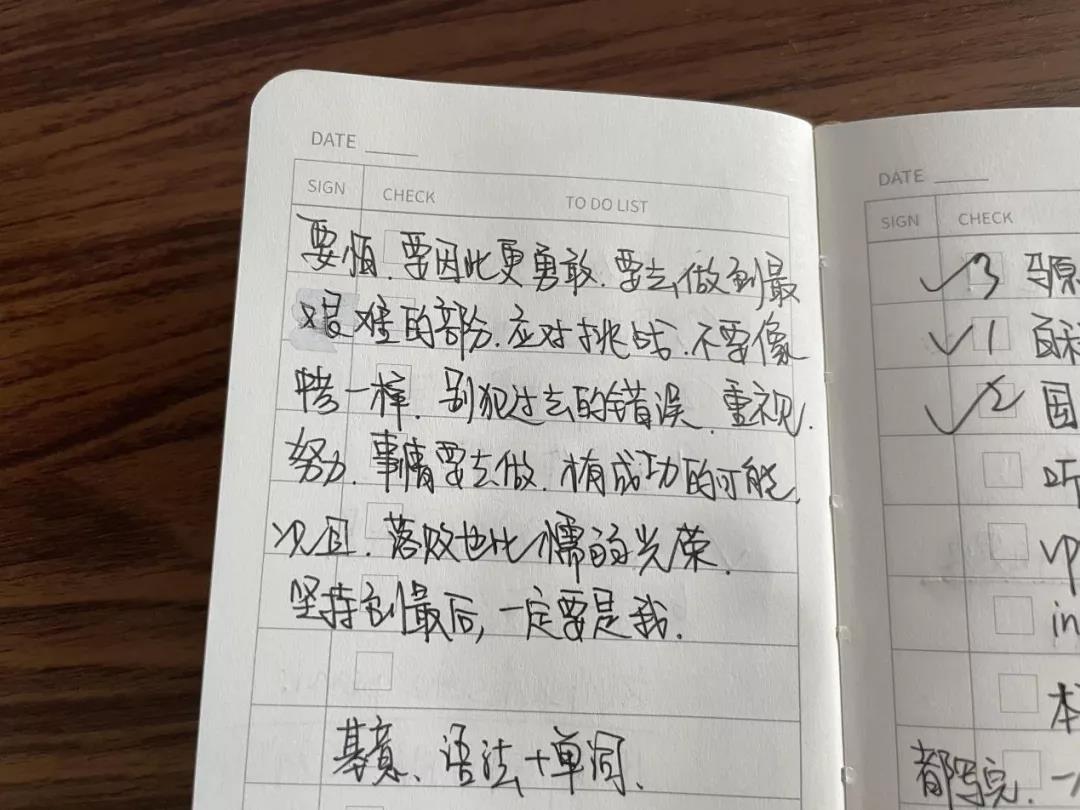 DATE
SIGN CHECK TO DO LIST
要恒.要因此更勇敢.要去做到最
艰难的部分.应对挑战.不要像
一样.别犯过去的错误.重视.
努力.事情要去做.才有成功的可能.
况且.落败也比懦弱光荣.
坚持到最后,一定要是我.
语法+单词.
DATE
SIGN CHECK
3 马原
1
2
听
vp
in
本
都写完.一